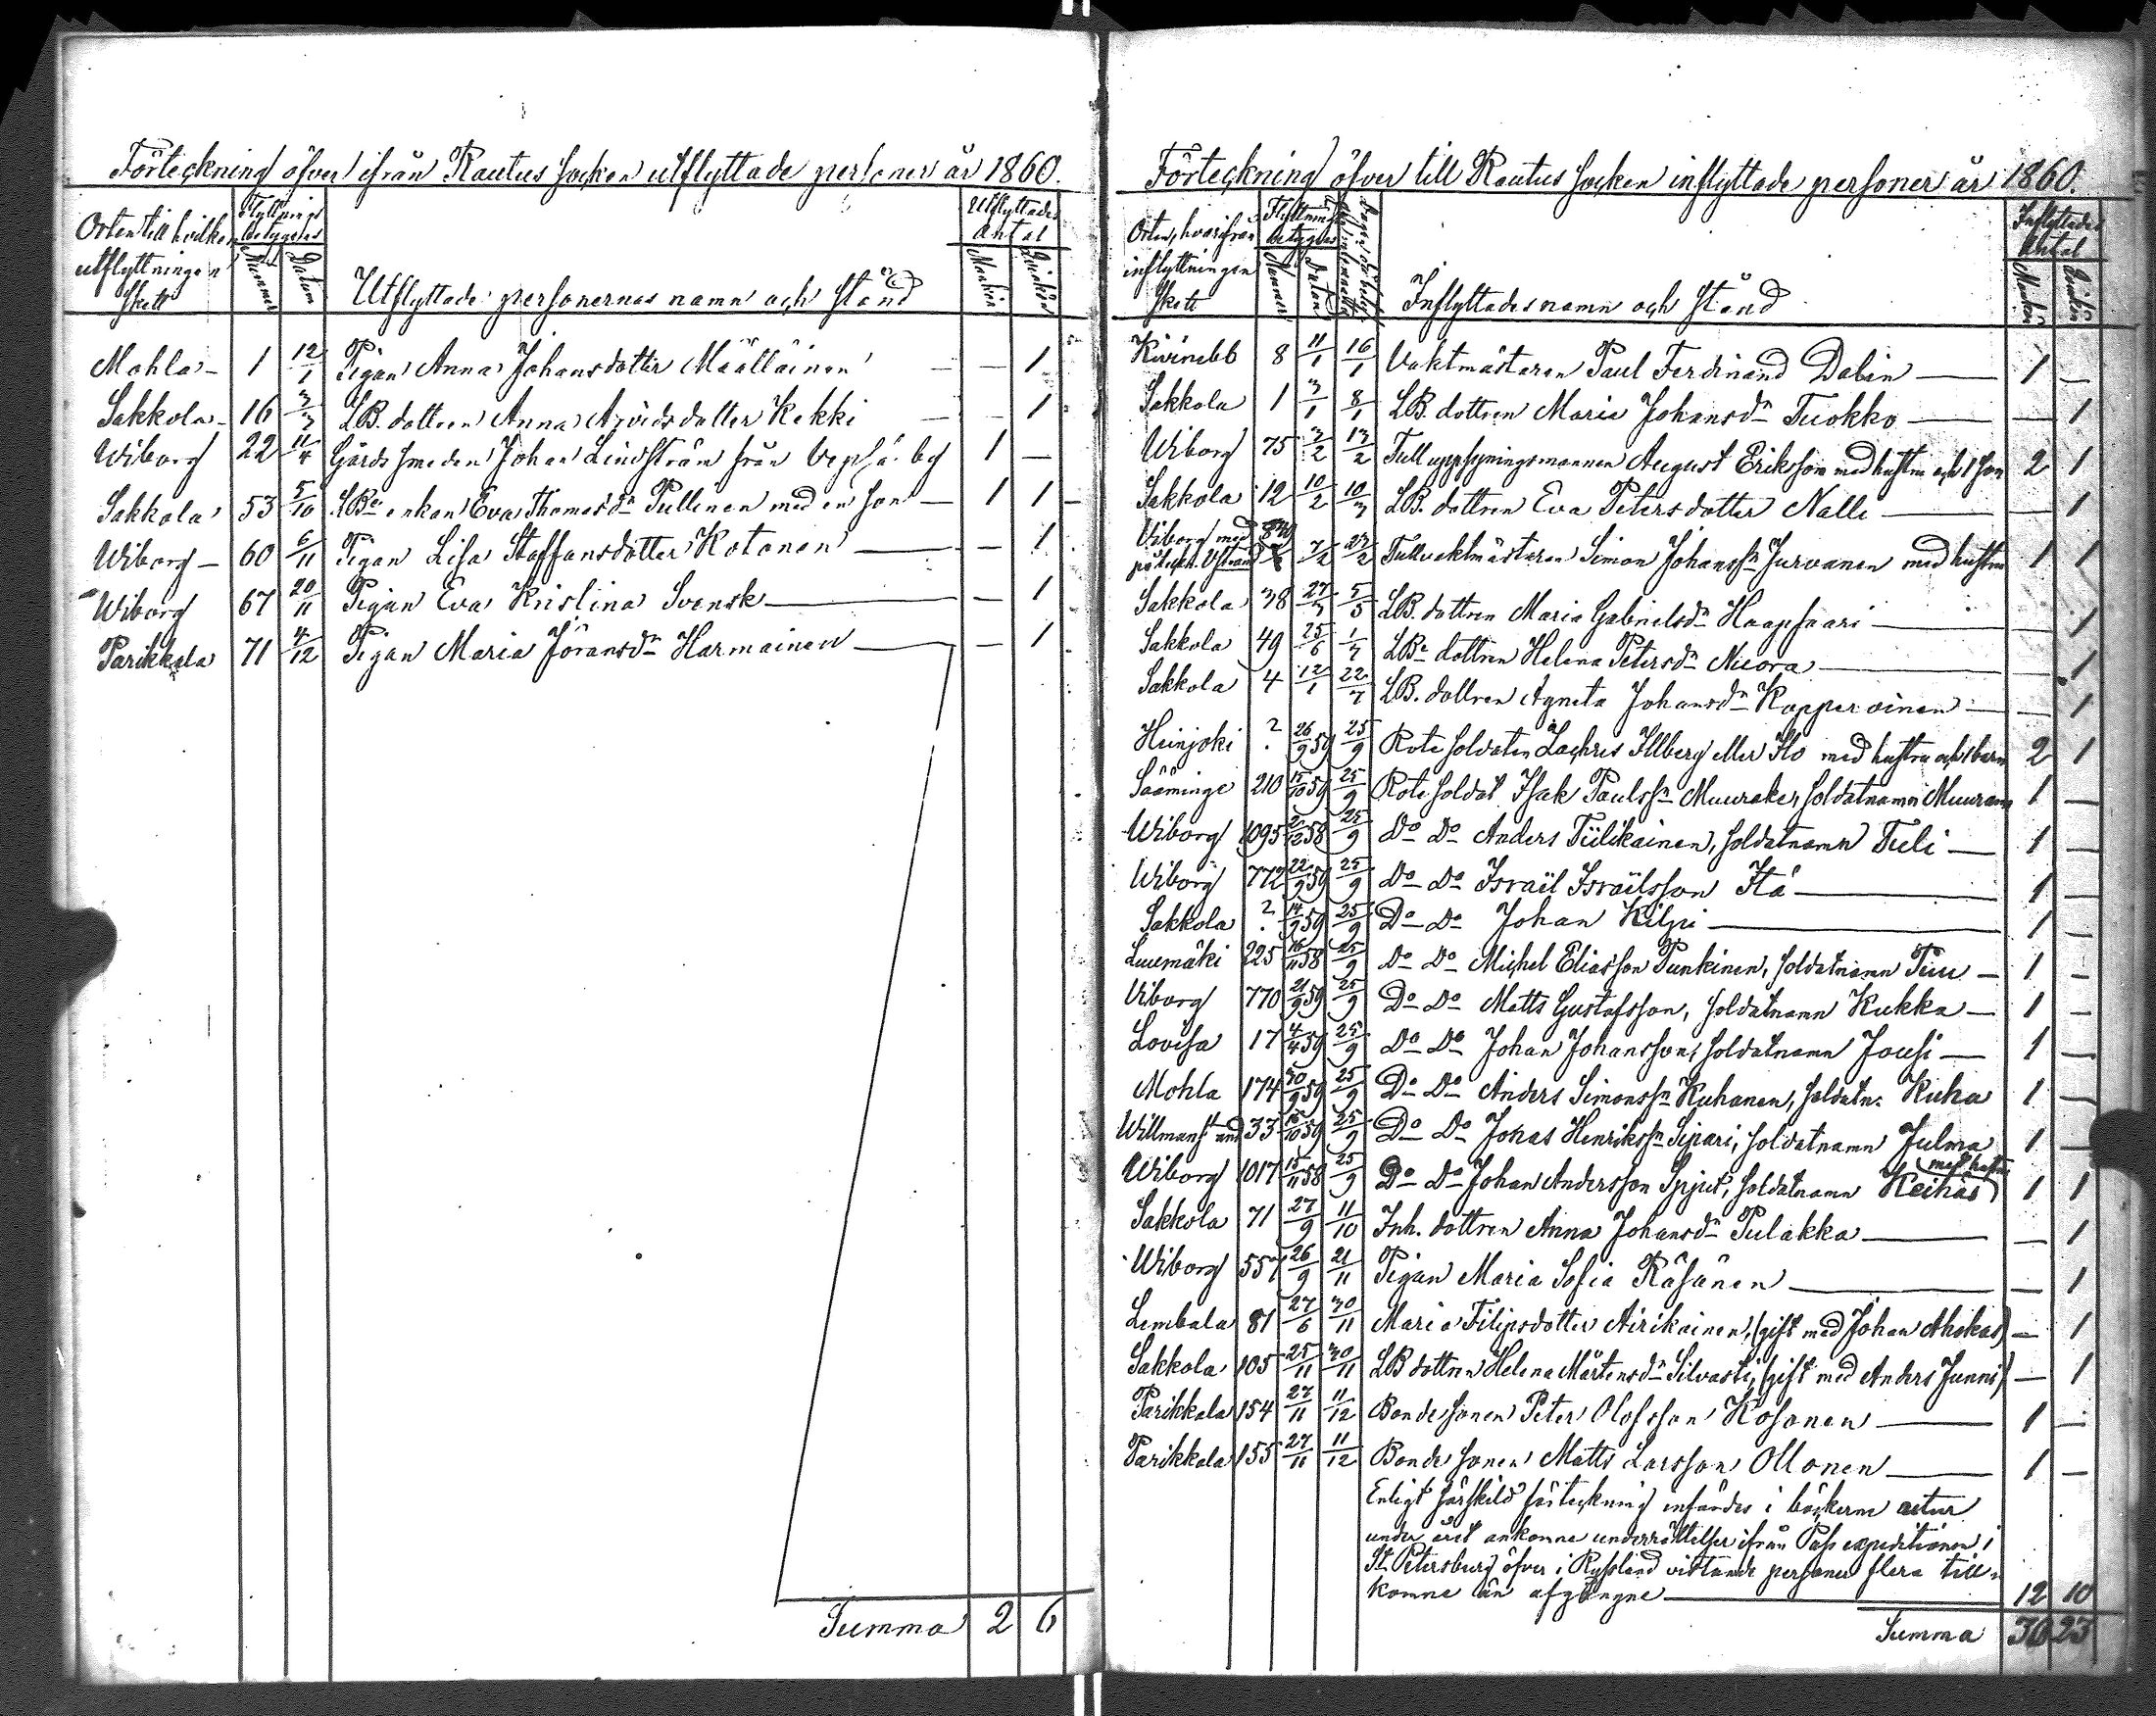 Förteckning öfver ifrån Rautus socken utflyttade personer år 1860.
Orten till hvilken utflyttningen skett | Flyttnings betygens Nummer | Datum | Utflyttade personernas namn och stånd | Utflyttades antal Mankön | Qvinkön
Mohla – 1 12/1 Pigan Anna Johansdotter Määttäinen — — 1
Sakkola – 16 3/3 LB. dottren Anna Arvidsdotter Kekki — — 1
Wiborg 22 11/4 Gårdssmeden Johan Lindström från by 1 —
Sakkola 53 5/10 LBe enkan Eva Thomasdr Pullinen med en son — 1 1
Wiborg – 60 6/11 Pigan Lisa Staffansdotter Kotonen — — 1
Wiborg 67 20/11 Pigan Eva Kristina Svensk — — 1
Parikkala 71 4/12 Pigan Maria Göransdr Harmainen — — 1
Summa 2 6
Förteckning öfver till Rautus socken inflyttade personer år 1860.
Orten, hvarifrån inflyttningen skett | Flyttnings betygens Nummer | Datum | Inflyttades namn och stånd | Inflyttades antal Mankön | Qvinkön
Kivinebb 8 11/1 16/1 Vaktmästaren Paul Ferdinand Dalin — 1 —
Sakkola 1 3/1 8/1 LB. dottren Maria Johansdr Tuokko — — 1
Wiborg 75 3/2 13/2 Tulluppsyningsmannen August Eriksson med hustru och 1 son 2 1
Sakkola 12 10/2 10/3 LB. dottren Eva Petersdotter Nalli — — 1
Viborg med
7/2 27/2 Tullvaktmästaren Simon Johanssn Jurvanen med hustru 1 1
Sakkola 38 27/3 5/5 LB. dottren Maria Gabrielsdr Haapsaari — — 1
Sakkola 49 25/6 1/7 LBe dottren Helena Petersdr Nicora — — 1
Sakkola 4 12/1 22/7 LB. dottren Agneta Johansdr Kopperoinen — — 1
Heinjoki ? 26/9 59 25/9 Rote soldaten Zachris Illberg eller Ilo med hustru och 1 barn 2 1
Sääminge 210 15/10 59 25/9 Rote soldat Isak Paulssn Muuraker, soldatnamn Muuran 1 —
Wiborg 1095 2/12 58 25/9 Do Do Anders Tiilikainen, soldatnamn Tuli — 1 —
Wiborg 772 22/9 59 25/9 Do Do Israël Israëlsson Itä — 1 —
Sakkola ? 14/9 59 25/9 Do Do Johan Kilpi — 1 —
Luumäki 225 16/11 58 25/9 Do Do Michel Eliasson Punkinen, soldatnamn Puu — 1 —
Viborg 770 21/9 59 25/9 Do Do Matts Gustafsson, soldatnamn Kukka — 1 —
Lovisa 17 4/4 59 25/9 Do Do Johan Johansson, soldatnamn Jousi — 1 —
Mohla 174 30/9 59 25/9 Do Do Anders Simonssn Kuhanen, soldatn. Kuha 1 —
Willmanstrand 33 15/10 59 25/9 Do Do Jonas Henrikssn Sipari, soldatnamn Julma 1 —
med hustru
Wiborg 1017 15/11 58 25/9 Do Do Johan Andersson Spjut, soldatnamn Keihäs 1 1
Sakkola 71 27/9 11/10 Inh. dottren Anna Johansdr Pulakka — — 1
Wiborg 557 26/9 21/11 Pigan Maria Sofia Räsänen — — 1
Lembala 81 27/6 30/11 Maria Filipsdotter Airikainen, (gift med Johan Ahokas) — 1
Sakkola 105 25/11 30/11 LB dottren Helena Mårtensdr Silvasti, (gift med Anders Junni) — 1
Parikkala 154 27/11 11/12 Bondesonen Peter Olofsson Kosonen — 1 —
Parikkala 155 27/11 11/12 Bondesonen Matts Larsson Ollonen — 1 —
Enligt särskild förteckning infördes i böckerne
under året ankomne underrättelser ifrån Pass expeditionen i
St Petersburg öfver i Ryssland vistande personer flera till-
komne än afgångne — 12 10
Summa 30 23